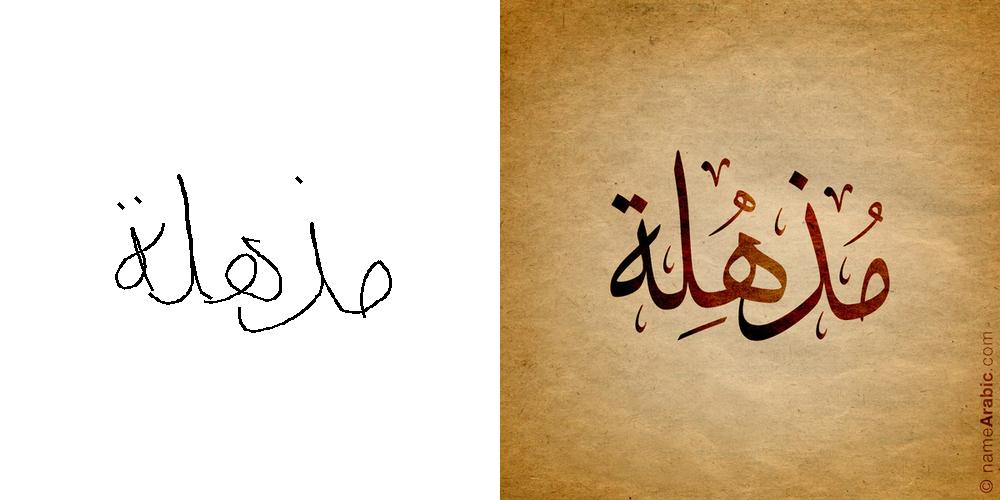 مذهلة
مُذهُلِة
© nameArabic.com